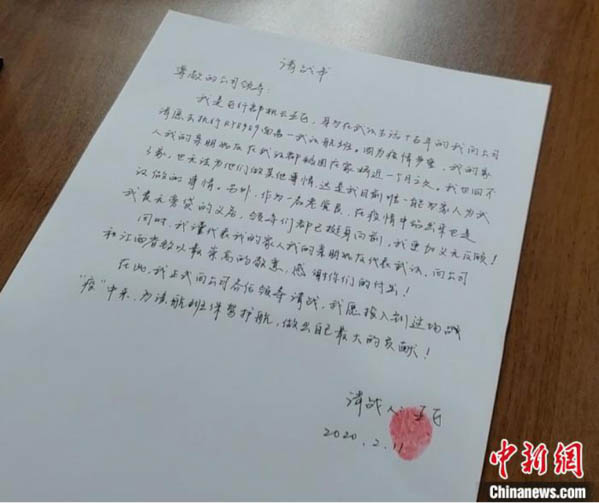 请战书
尊敬的公司领导：
我是飞行部机长王飞，身为在武汉生活十五年的我向公司
请愿去执行RY8989南昌—武汉航班。因为疫情严重，我的家
人我的亲朋好友在武汉都被困在家将近一个月之久。我也回不
了家，也无法为他们做其他事情，这是我目前唯一能为家人为武
汉做的事情。另外，作为一名老党员，在疫情中的出来也是
我责无旁贷的义务，领导们都已挺身向前，我更加义无反顾！
同时，我谨代表我的家人我的亲朋好友代表武汉，向公司
和江西省致以最崇高的敬意，感谢你们的付出！
在此，我正式向公司各位领导请战，我愿投入到这场战
“疫”中来，为该航班保驾护航，做出自己最大的贡献！
请战人：王飞
2020.2.11
中新网
Chinanews.com